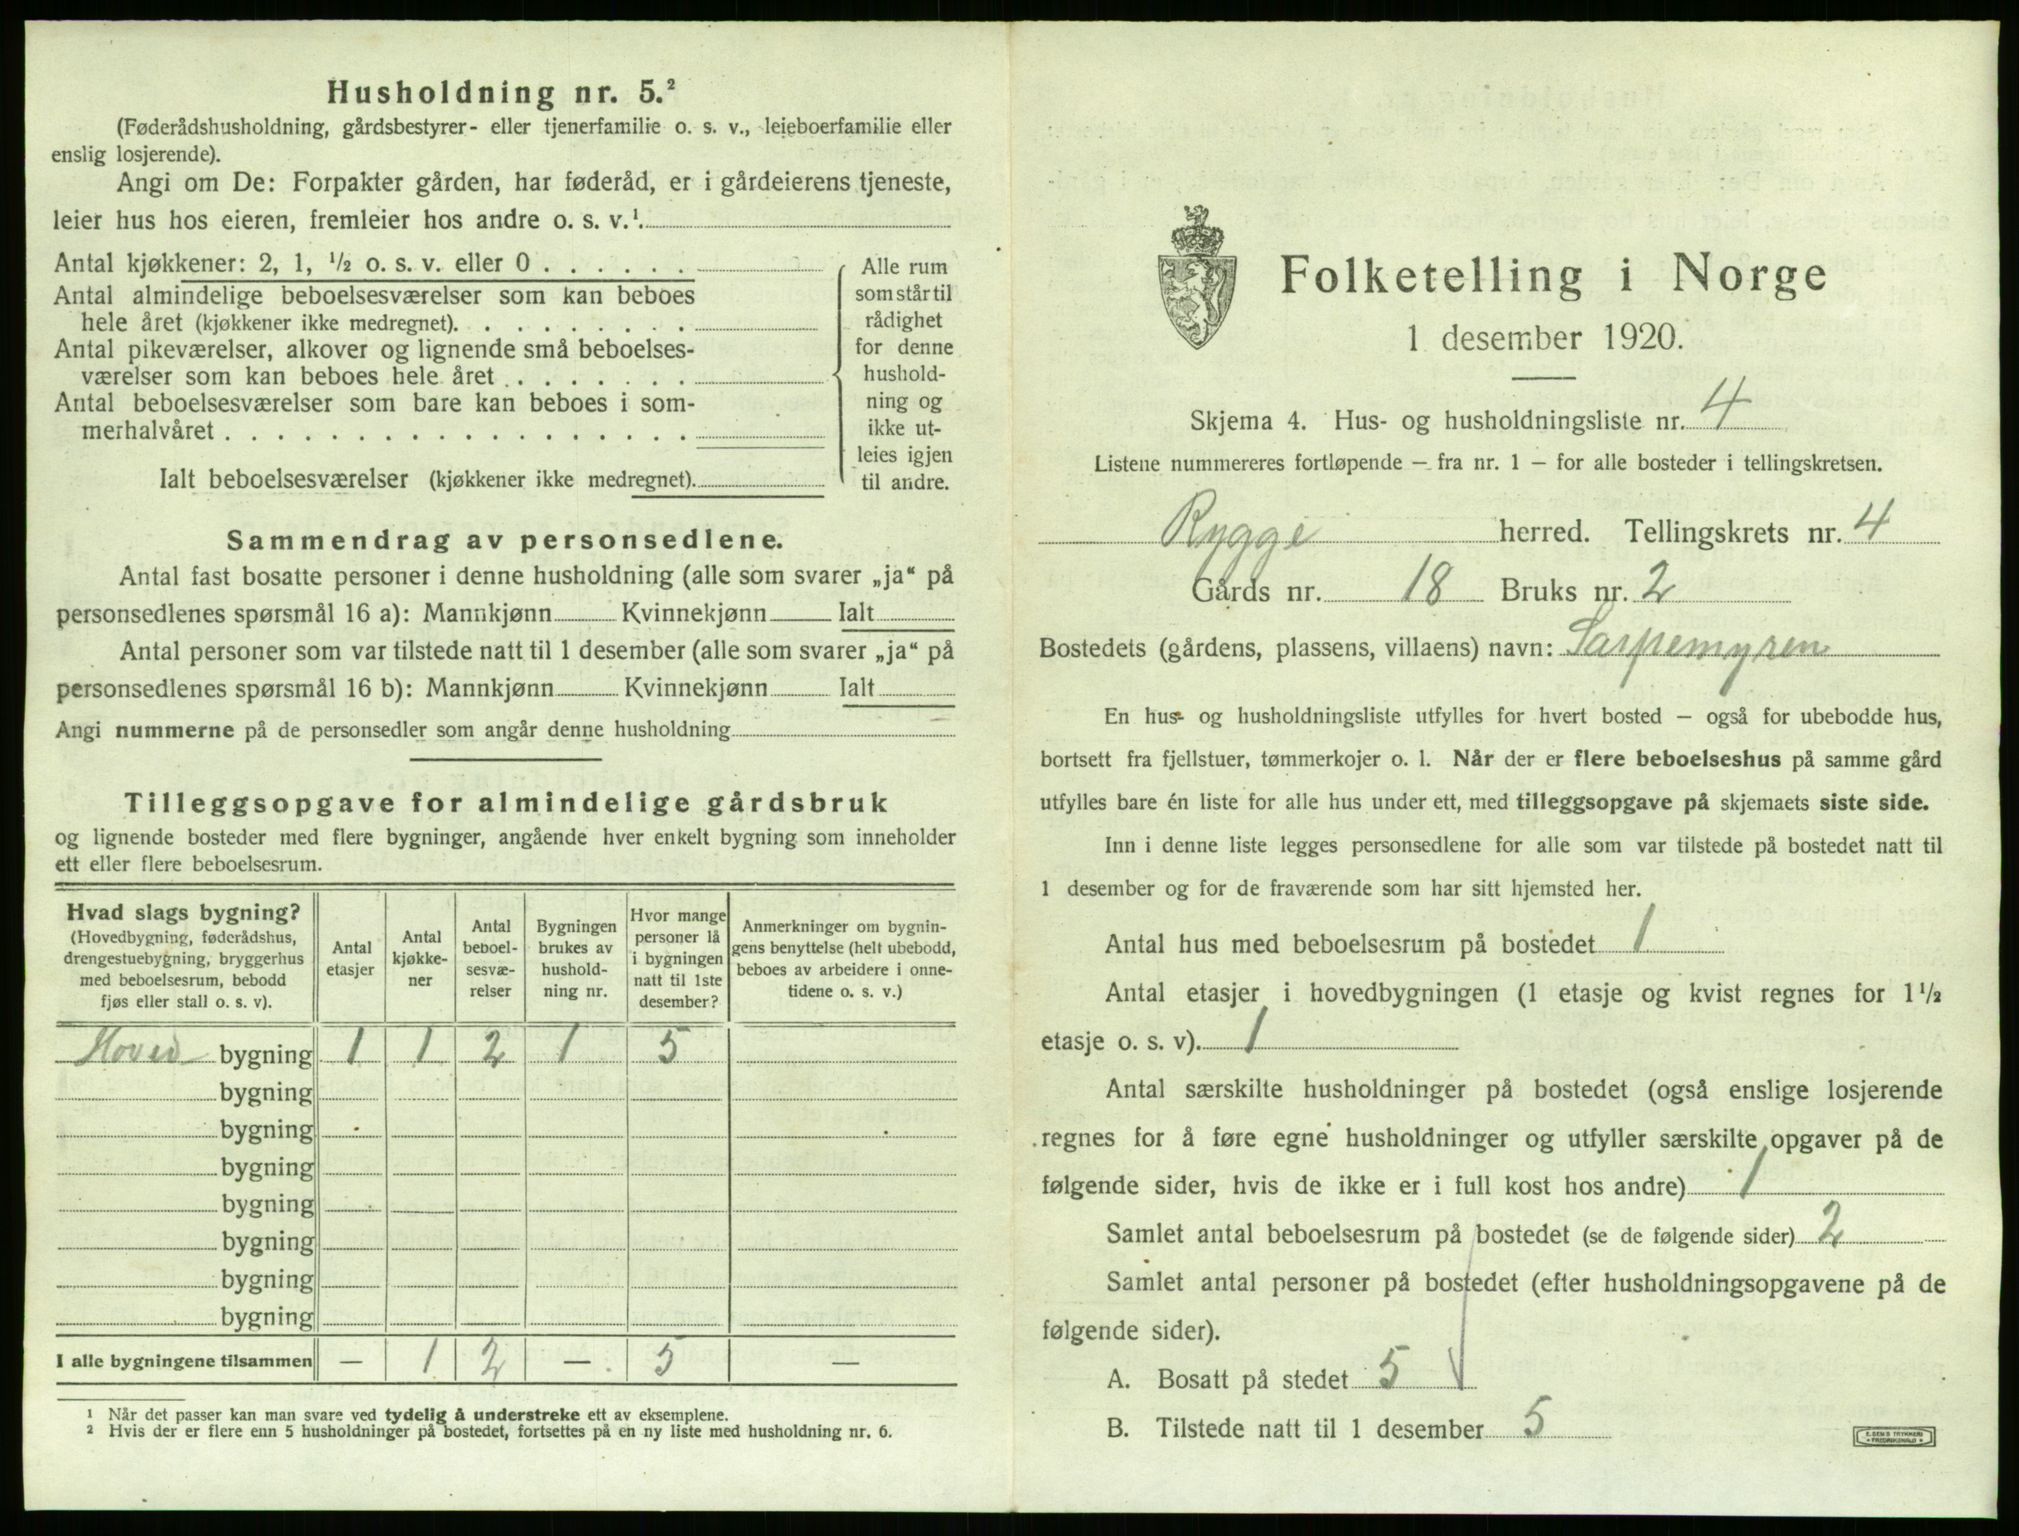 Husholdning nr. 5.²
(Føderådshusholdning, gårdsbestyrer- eller tjenerfamilie o. s. v., leieboerfamilie eller
enslig losjerende).
Angi om De: Forpakter gården, har føderåd, er i gårdeierens tjeneste,
leier hus hos eieren, fremleier hos andre o. s. v.¹.
Antal kjøkkener: 2, 1, ½ o. s. v. eller 0 . . . . . .
Antal almindelige beboelsesværelser som kan beboes
hele året (kjøkkener ikke medregnet). . . . . . . . .
Antal pikeværelser, alkover og lignende små beboelses-
værelser som kan beboes hele året . . . . . . .
Antal beboelsesværelser som bare kan beboes i som-
merhalvåret . . . . . . . . . . . . . . . . . .
Ialt beboelsesværelser (kjøkkener ikke medregnet).
Alle rum
som står til
rådighet
for denne
hushold-
ning og
ikke ut-
leies igjen
til andre.
Sammendrag av personsedlene.
Antal fast bosatte personer i denne husholdning (alle som svarer „ja“ på
personsedlenes spørsmål 16 a): Mannkjønn Kvinnekjønn Ialt
Antal personer som var tilstede natt til 1 desember (alle som svarer „ja“ på
personsedlenes spørsmål 16 b): Mannkjønn Kvinnekjønn Ialt
Angi nummerne på de personsedler som angår denne husholdning
Tilleggsopgave for almindelige gårdsbruk
og lignende bosteder med flere bygninger, angående hver enkelt bygning som inneholder
ett eller flere beboelsesrum.
Hvad slags bygning?
(Hovedbygning, føderådshus,
drengestuebygning, bryggerhus
med beboelsesrum, bebodd
fjøs eller stall o. s. v).
Antal
etasjer
Antal
kjøkke-
ner
Antal
beboel-
sesvæ-
relser
Bygningen
brukes av
hushold-
ning nr.
Hvor mange
personer lå
i bygningen
natt til 1ste
desember?
Anmerkninger om bygnin-
gens benyttelse (helt ubebodd,
beboes av arbeidere i onne-
tidene o. s. v.)
Hoved bygning 1 1 2 1 5
bygning
bygning
bygning
bygning
bygning
bygning
bygning
I alle bygningene tilsammen — 1 2 — 5 —
¹ Når det passer kan man svare ved tydelig å understreke ett av eksemplene.
² Hvis der er flere enn 5 husholdninger på bostedet, fortsettes på en ny liste med husholdning nr. 6.
Folketelling i Norge
1 desember 1920.
Skjema 4. Hus- og husholdningsliste nr. 4
Listene nummereres fortløpende — fra nr. 1 — for alle bosteder i tellingskretsen.
Rygge herred. Tellingskrets nr. 4
Gårds nr. 18 Bruks nr. 2
Bostedets (gårdens, plassens, villaens) navn: Sarpemyren
En hus- og husholdningsliste utfylles for hvert bosted — også for ubebodde hus,
bortsett fra fjellstuer, tømmerkojer o. l. Når der er flere beboelseshus på samme gård
utfylles bare én liste for alle hus under ett, med tilleggsopgave på skjemaets siste side.
Inn i denne liste legges personsedlene for alle som var tilstede på bostedet natt til
1 desember og for de fraværende som har sitt hjemsted her.
Antal hus med beboelsesrum på bostedet 1
Antal etasjer i hovedbygningen (1 etasje og kvist regnes for 1½
etasje o. s. v). 1
Antal særskilte husholdninger på bostedet (også enslige losjerende
regnes for å føre egne husholdninger og utfyller særskilte opgaver på de
følgende sider, hvis de ikke er i full kost hos andre) 1
Samlet antal beboelsesrum på bostedet (se de følgende sider) 2
Samlet antal personer på bostedet (efter husholdningsopgavene på de
følgende sider).
A. Bosatt på stedet 5
B. Tilstede natt til 1 desember 5